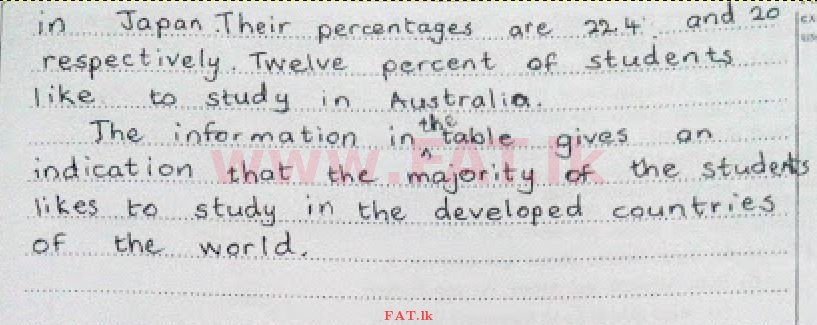 in Japan. Their percentages are 22.4 and 20
respectively. Twelve percent of students
like to study in Australia.
The information in the table gives an
indication that the majority of the students
likes to study in the developed countries
of the world.
www.FAT.lk
FAT.lk